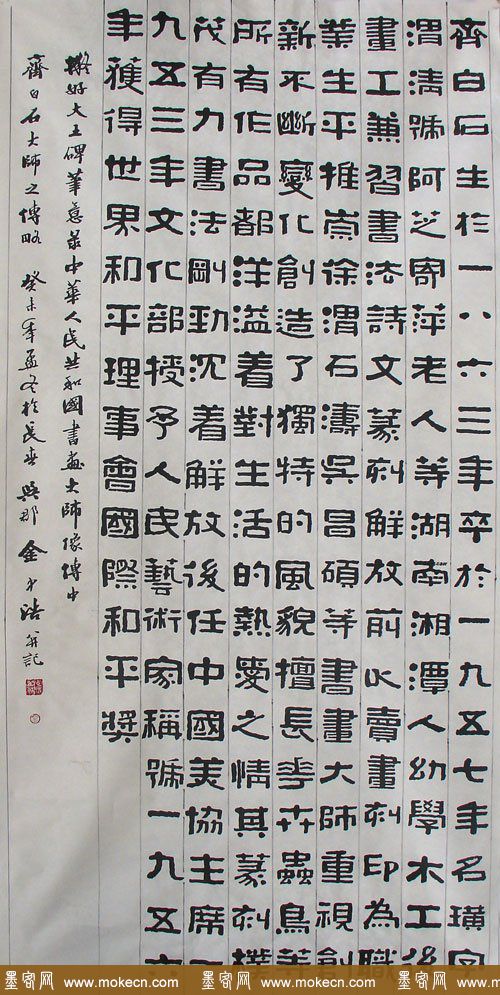 齊白石生於一八六三年卒於一九五七年名璜字
渭清號阿芝寄萍老人等湖南湘潭人幼學木工後
畫工兼習書法詩文篆刻解放前以賣畫刻印為職
業生平推崇徐渭石濤吳昌碩等書畫大師重視創
新不斷變化創造了獨特的風貌擅長花卉蟲鳥等
所有作品都洋溢着對生活的熱愛之情其篆刻樸
茂有力書法剛勁沉着解放後任中國美協主席一
九五三年文化部授予人民藝術家稱號一九五六
年獲得世界和平理事會國際和平獎
擬好大王碑筆意录中華人民共和國書畫大師像傳中
齊白石大師之傳略 癸未年孟冬於長春 金中浩并記
墨客网 www.mokecn.com 墨客网 www.mokecn.com 墨客网 www.mokecn.com